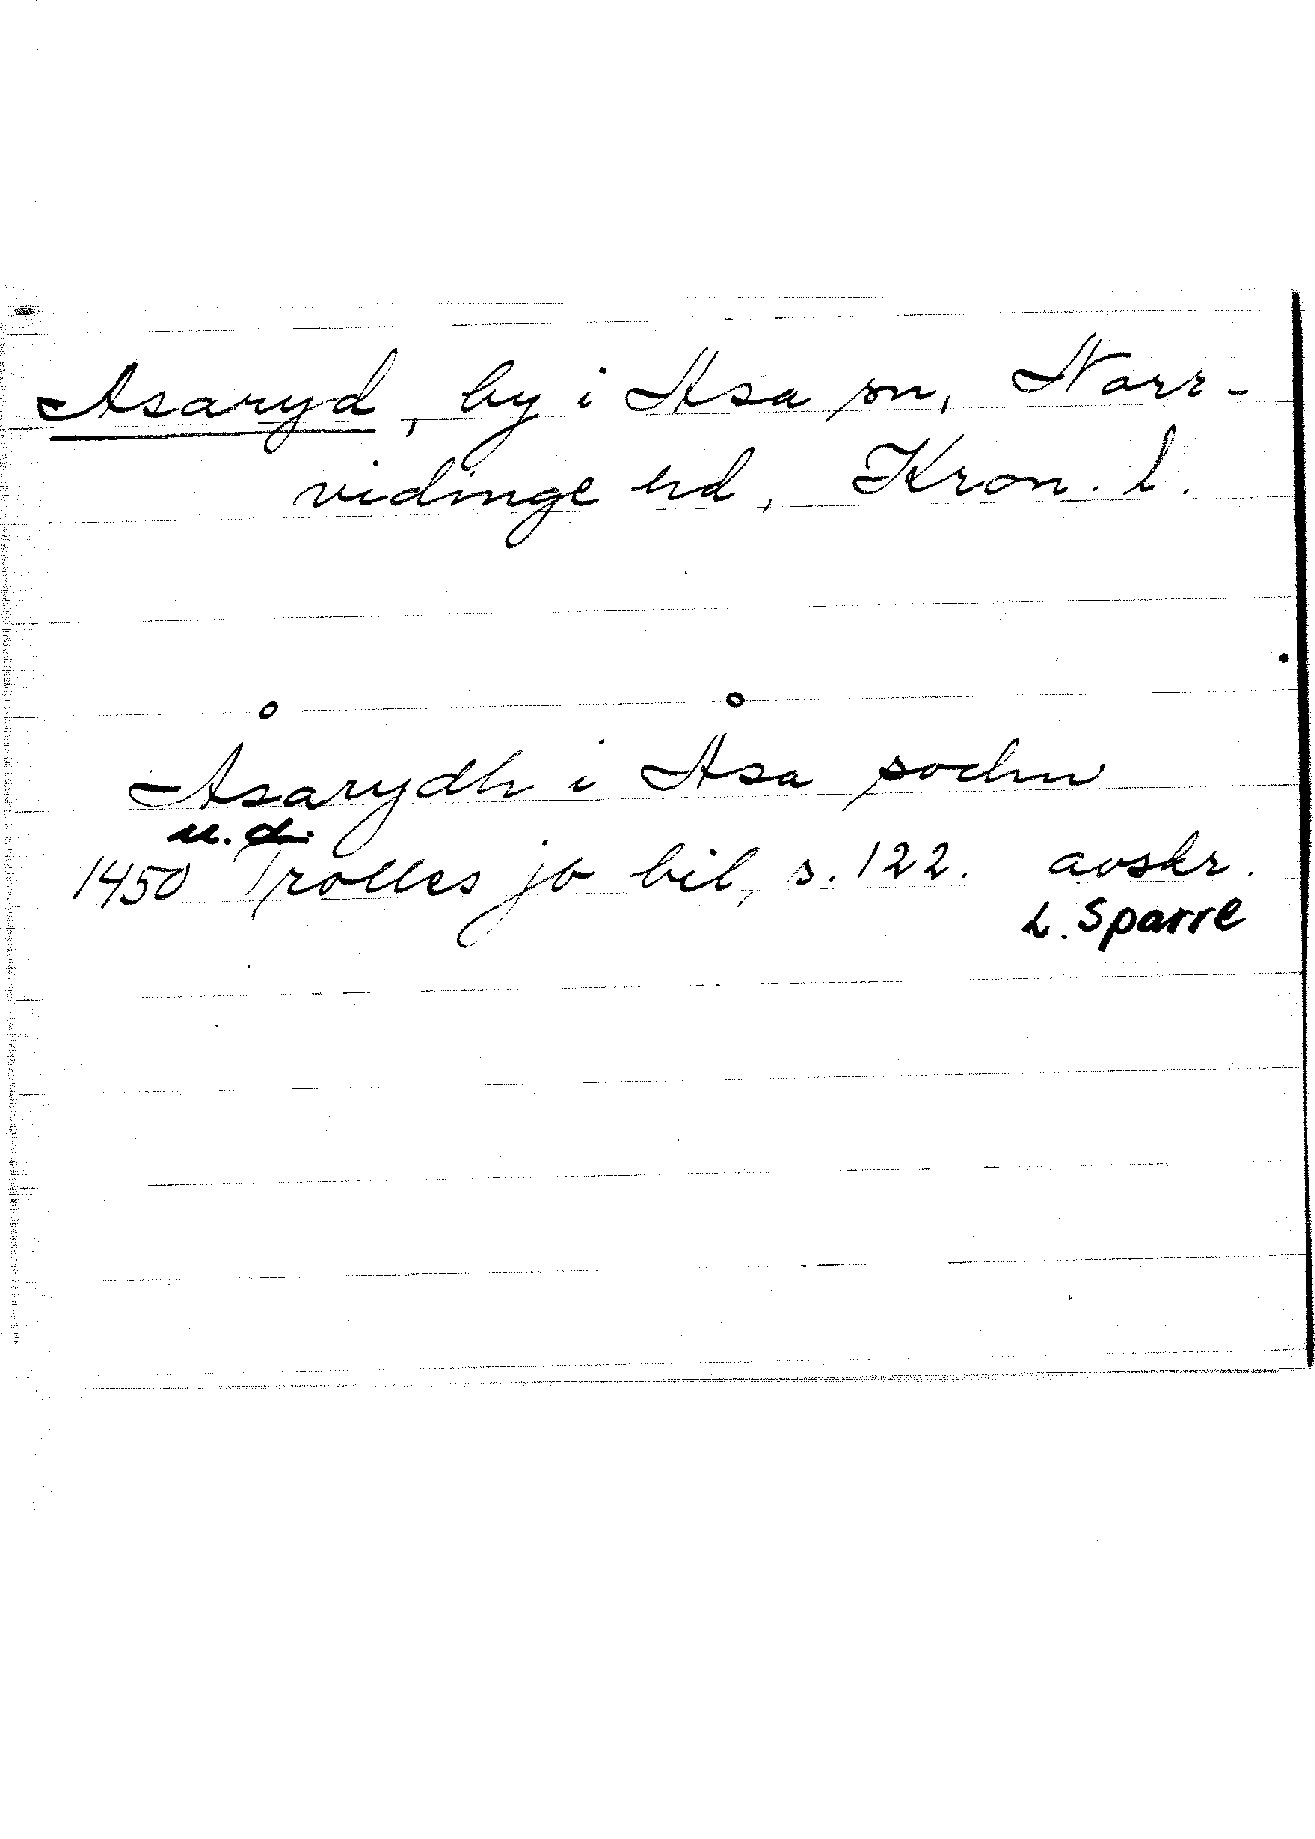 Asaryd, by i Asa sn, Norr-
vidinge hd, Kron. l.
Åsarydh i Åsa sochn
u.d.
1450 Trolles jb bil, s. 122. avskr.
L. Sparre